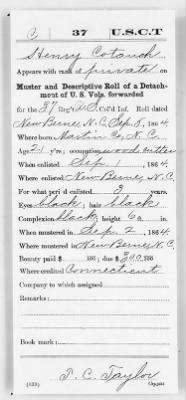 C 37 U.S.C.T
Henry Cotanch
Appears with rank of private on
Muster and Descriptive Roll of a Detach-
ment of U. S. Vols. forwarded
for the 37 Reg't U.S. Col'd Inf. Roll dated
New Berne, N.C. Sep. 8, 1864.
Where born Martin Co, N.C.
Age 21 y'rs; occupation wood cutter
When enlisted Sep 1, 1864.
Where enlisted New Berne, N.C.
For what period enlisted 3 years.
Eyes black; hair black
Complexion black; height 6 ft. in.
When mustered in Sep. 2, 1864
Where mustered in New Berne, N.C.
Bounty paid $ 100; due $ 100
Where credited Connecticut
Company to which assigned
Remarks:
Book mark:
T. C. Taylor
(339) Copyist